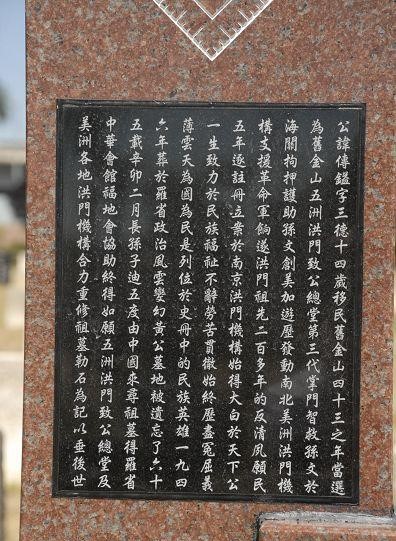 公諱傳鎰字三德十四歲移民舊金山四十三之年當選
為舊金山五洲洪門致公總堂第三代掌門智救孫文於
海關拘押護助孫文創美加遊歷發動南北美洲洪門機
構支援革命軍餉遂洪門祖先二百多年的反清風願民
五年逐註冊立案於南京洪門機構始得大白於天下公
一生致力於民族福祉不辭勞苦貫徹始終歷盡冤屈義
薄雲天為國為民是列位於史冊中的民族英雄一九四
六年葬於羅省政治風雲變幻黃公墓地被遺忘了六十
五載辛卯二月長孫子迪五度由中國來尋祖墓得羅省
中華會館福地會協助終得如願五洲洪門致公總堂及
美洲各地洪門機構合力重修祖墓勒石為記以垂後世